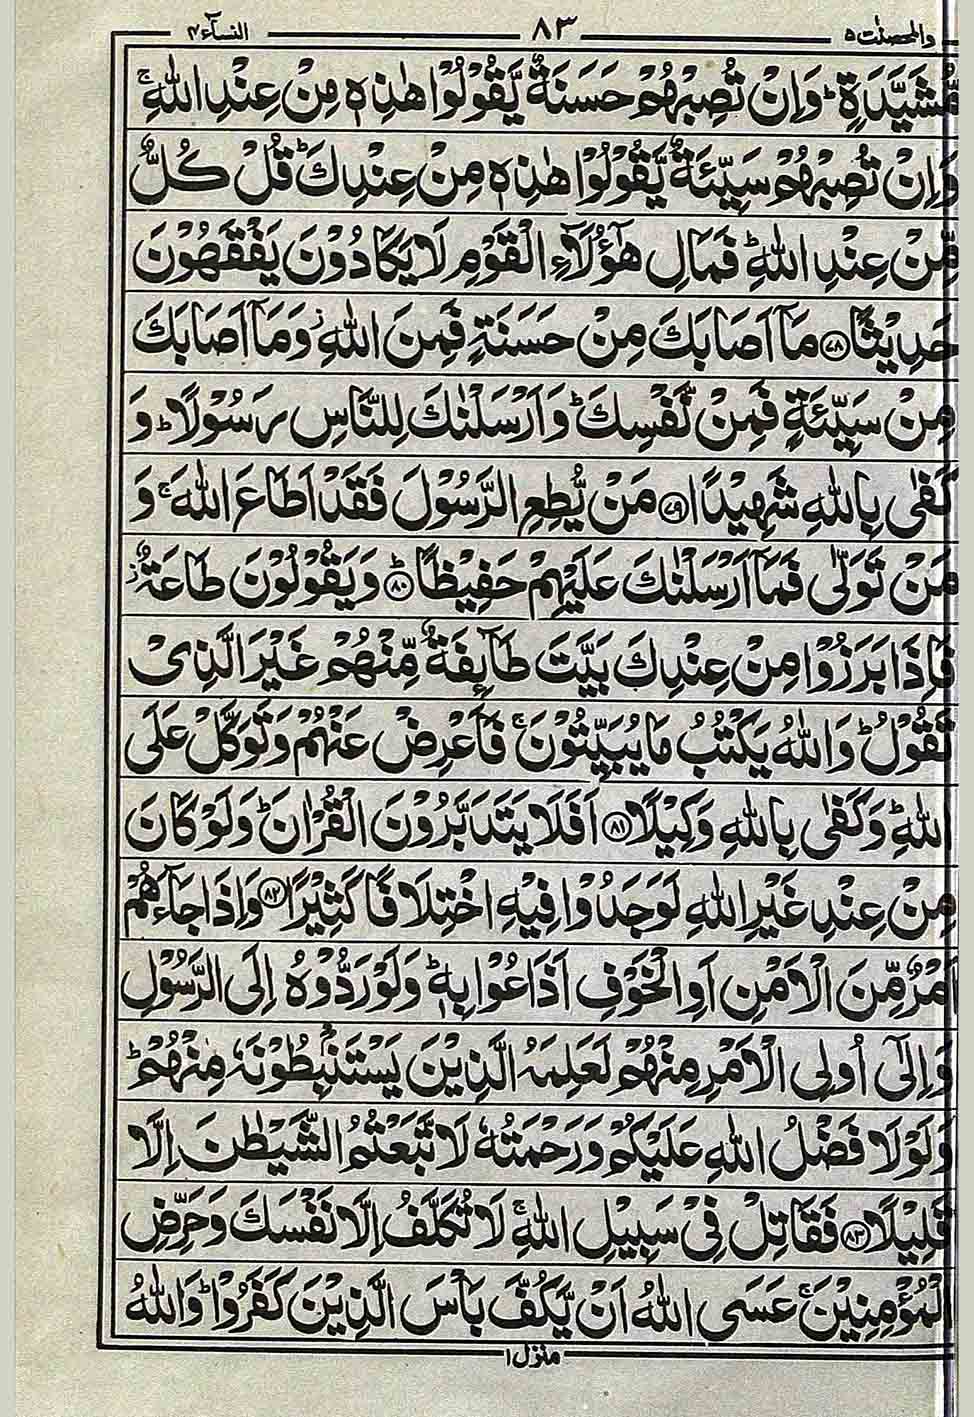 والمحصنت ٥ ٨٣ النسآء ٤
مُّشَيَّدَةٍ ؕ وَاِنْ تُصِبْهُمْ حَسَنَةٌ يَّقُوْلُوْا هٰذِهٖ مِنْ عِنْدِ اللّٰهِ ۚ
وَاِنْ تُصِبْهُمْ سَيِّئَةٌ يَّقُوْلُوْا هٰذِهٖ مِنْ عِنْدِكَ ؕ قُلْ كُلٌّ
مِّنْ عِنْدِ اللّٰهِ ؕ فَمَالِ هٰۤؤُلَآءِ الْقَوْمِ لَا يَكَادُوْنَ يَفْقَهُوْنَ
حَدِيْثًا ﴿٧٨﴾ مَاۤ اَصَابَكَ مِنْ حَسَنَةٍ فَمِنَ اللّٰهِ ز وَمَاۤ اَصَابَكَ
مِنْ سَيِّئَةٍ فَمِنْ نَّفْسِكَ ؕ وَاَرْسَلْنٰكَ لِلنَّاسِ رَسُوْلًا ؕ وَ
كَفٰى بِاللّٰهِ شَهِيْدًا ﴿٧٩﴾ مَنْ يُّطِعِ الرَّسُوْلَ فَقَدْ اَطَاعَ اللّٰهَ ۚ وَ
مَنْ تَوَلّٰى فَمَاۤ اَرْسَلْنٰكَ عَلَيْهِمْ حَفِيْظًا ؕ ﴿٨٠﴾ وَيَقُوْلُوْنَ طَاعَةٌ ز
فَاِذَا بَرَزُوْا مِنْ عِنْدِكَ بَيَّتَ طَآئِفَةٌ مِّنْهُمْ غَيْرَ الَّذِىْ
تَقُوْلُ ؕ وَاللّٰهُ يَكْتُبُ مَا يُبَيِّتُوْنَ ۚ فَاَعْرِضْ عَنْهُمْ وَتَوَكَّلْ عَلَى
اللّٰهِ ؕ وَكَفٰى بِاللّٰهِ وَكِيْلًا ﴿٨١﴾ اَفَلَا يَتَدَبَّرُوْنَ الْقُرْاٰنَ ؕ وَلَوْ كَانَ
مِنْ عِنْدِ غَيْرِ اللّٰهِ لَوَجَدُوْا فِيْهِ اخْتِلَافًا كَثِيْرًا ﴿٨٢﴾ وَاِذَا جَآءَهُمْ
اَمْرٌ مِّنَ الْاَمْنِ اَوِ الْخَوْفِ اَذَاعُوْا بِهٖ ؕ وَلَوْ رَدُّوْهُ اِلَى الرَّسُوْلِ
وَاِلٰٓى اُولِى الْاَمْرِ مِنْهُمْ لَعَلِمَهُ الَّذِيْنَ يَسْتَنْۢبِطُوْنَهٗ مِنْهُمْ ؕ
وَلَوْلَا فَضْلُ اللّٰهِ عَلَيْكُمْ وَرَحْمَتُهٗ لَا تَّبَعْتُمُ الشَّيْطٰنَ اِلَّا
قَلِيْلًا ﴿٨٣﴾ فَقَاتِلْ فِىْ سَبِيْلِ اللّٰهِ ۚ لَا تُكَلَّفُ اِلَّا نَفْسَكَ وَحَرِّضِ
الْمُؤْمِنِيْنَ ۚ عَسَى اللّٰهُ اَنْ يَّكُفَّ بَاْسَ الَّذِيْنَ كَفَرُوْا ؕ وَاللّٰهُ
منزل ١